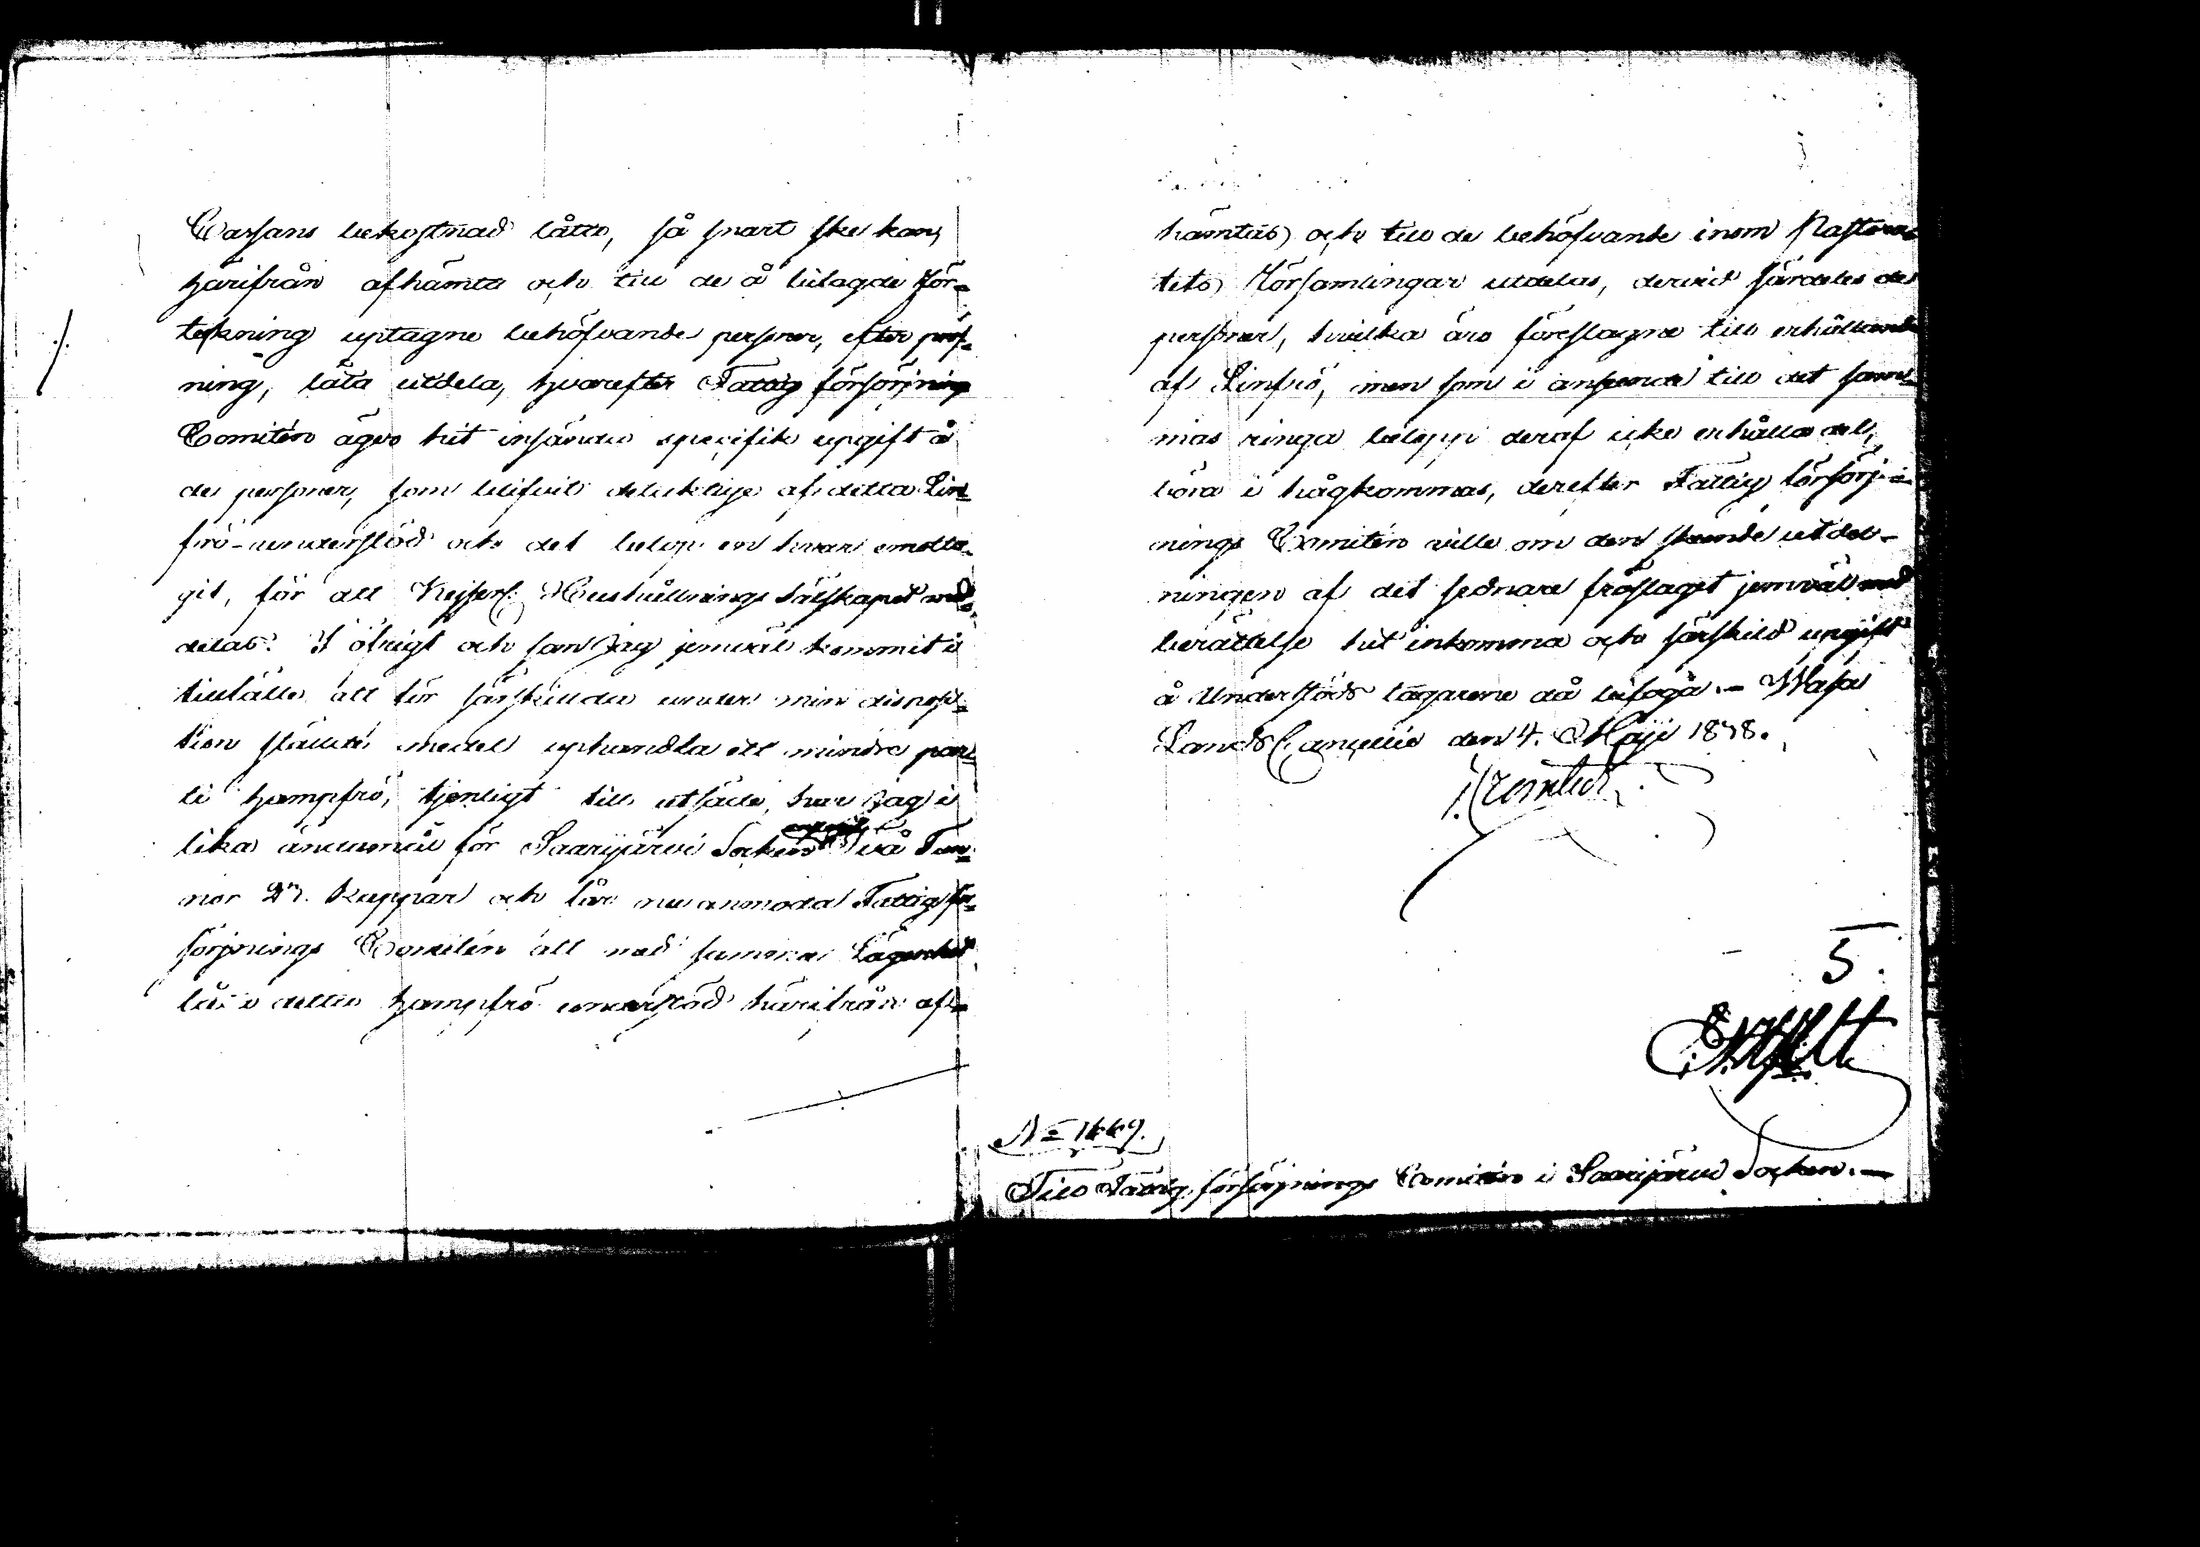 Cassans bekostnad låta, så snart ske kan,
härifrån afhämta och till de å bilagde för-
tekning uptagne behöfvande personer, efter pröf-
ning, låta utdela, hvarefter Fattig försörjnings
Comitén äger hit insända specifik upgift å
de personer, som blifvit delaktige af detta Lin-
frö-understöd och det belop en hvar emotta-
git, för att Kejserl: Hushållnings Sälskapet med-
delas. I öfrigt och som jag jemväl kommit i
tillfälle att för särskilda under min disposi-
tion stälda medel uphandla ett mindre par-
ti hampfrö, tjenligt till utsäde, har jag i
lika ändamål för Saarijärvi Socken Två Tun-
nor 27. Kappar och får nu anmoda Fattig för-
sörjnings Comitén att med samma Lägenhet
låta detta hampfrö understöd härifrån af-
hämtas och till de behöfvande inom Pastora-
tets Församlingar utdelas, dervid särdeles de
personer, hvilka äro föreslagne till erhållande
af Linfrö, men som i anseende till det sam-
mas ringa belopp deraf icke erhålla del,
böra i hågkommas, derefter Fattig försörj-
nings Comitén ville om den skeende utdel-
ningen af det sednare fröslaget jemväl med
berättelse hit inkomma och särskild upgift
å Understöds tagarene då bifoga. - Wasa
Lands Cancellie den 4. Maji 1838.
5.
N= 1449.
Till Fattig försörjnings Comitén i Saarijärvi Socken. -